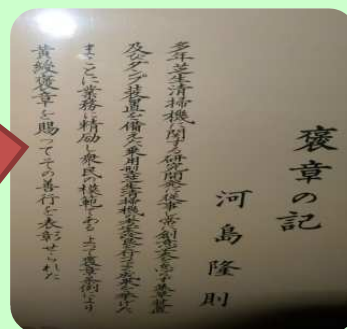 褒章の記
河島隆則
多年芝生清掃機に関する研究開発に従事し常に創意工夫
及びダンプ装置を備えた乗用型芝生清掃機
まことに業務に精励し衆民の模範である よって褒章条例により
黄綬褒章を賜ってその善行を表彰せられた